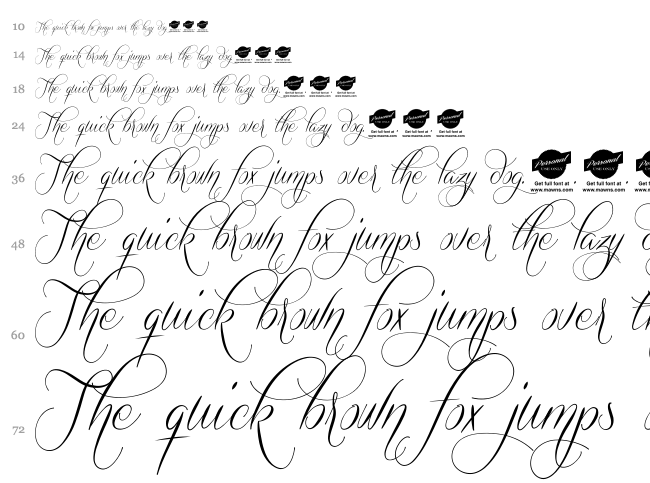 10 The quick brown fox jumps over the lazy dog.
14 The quick brown fox jumps over the lazy dog.
18 The quick brown fox jumps over the lazy dog. Personal USE ONLY Get full font at ' www.mawns.com Personal USE ONLY Get full font at ' www.mawns.com Personal USE ONLY Get full font at www.mawns.com
24 The quick brown fox jumps over the lazy dog. Personal USE ONLY Get full font at ' www.mawns.com Personal USE ONLY Get full font at ' www.mawns.com Personal USE ONLY Get full font at ' www.mawns.com
36 The quick brown fox jumps over the lazy dog. Personal USE ONLY Get full font at ' www.mawns.com Personal USE ONLY Get full font at ' www.mawns.com
48 The quick brown fox jumps over the lazy
60 The quick brown fox jumps over
72 The quick brown fox jumps